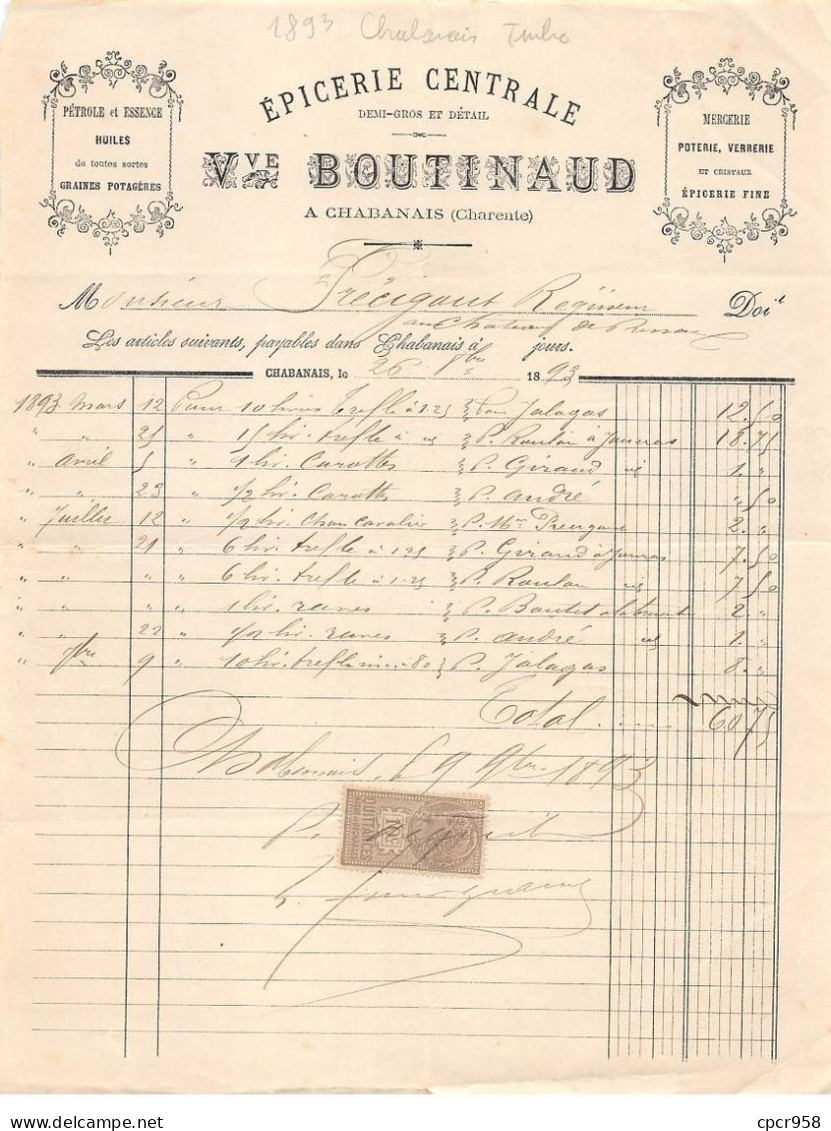 1893 Chabanais
PÉTROLE et ESSENCE
HUILES
de toutes sortes
GRAINES POTAGÈRES
ÉPICERIE CENTRALE
DEMI-GROS ET DÉTAIL
VVE BOUTINAUD
A CHABANAIS (Charente)
MERCERIE
POTERIE, VERRERIE
ET CRISTAUX
ÉPICERIE FINE
Monsieur Précigout Régisseur Doit
au Chateau de
Les articles suivants, payables dans Chabanais à jours.
CHABANAIS, le 26 1893
1893 Mars 12 Pour 10 livres Trefle à 1.25 Pour Jalagas 12.50
" " 25 " 15 liv. trefle à P. Roulon à 18.75
" Avril 5 " 1 liv. Carottes P. Giraud 1. "
" " 23 " 1/2 liv. Carottes P. André " 50
" Juillet 12 " 1/2 liv. P. 2. "
" " 21 " 6 liv. trefle à 1.25 P. Giraud à 7.50
" " " " 6 liv. trefle à 1.25 P. Roulon 7.50
" " " " 1 liv. raves P. Boutet 2 "
" " 22 " 1/2 liv. raves P. André 1. "
" 9 " 10 liv. trefle à 80 P. Jalagas 8. "
Total ..... 60 75
Chabanais, le 9 9bre 1893
P.
QUITTANCES
10c
cpcr958